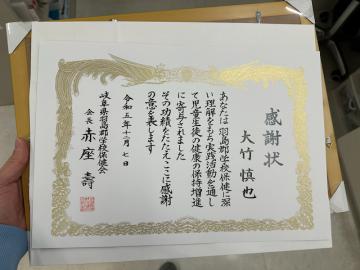 感謝状
大竹慎也
あなたは羽島郡学校保健に深
い理解をもち実践活動を通し
て児童生徒の健康の保持増進
に寄与されました
その功績をたたえここに感謝
の意を表します
令和五年十二月七日
岐阜県羽島郡学校保健会
会長 赤座壽